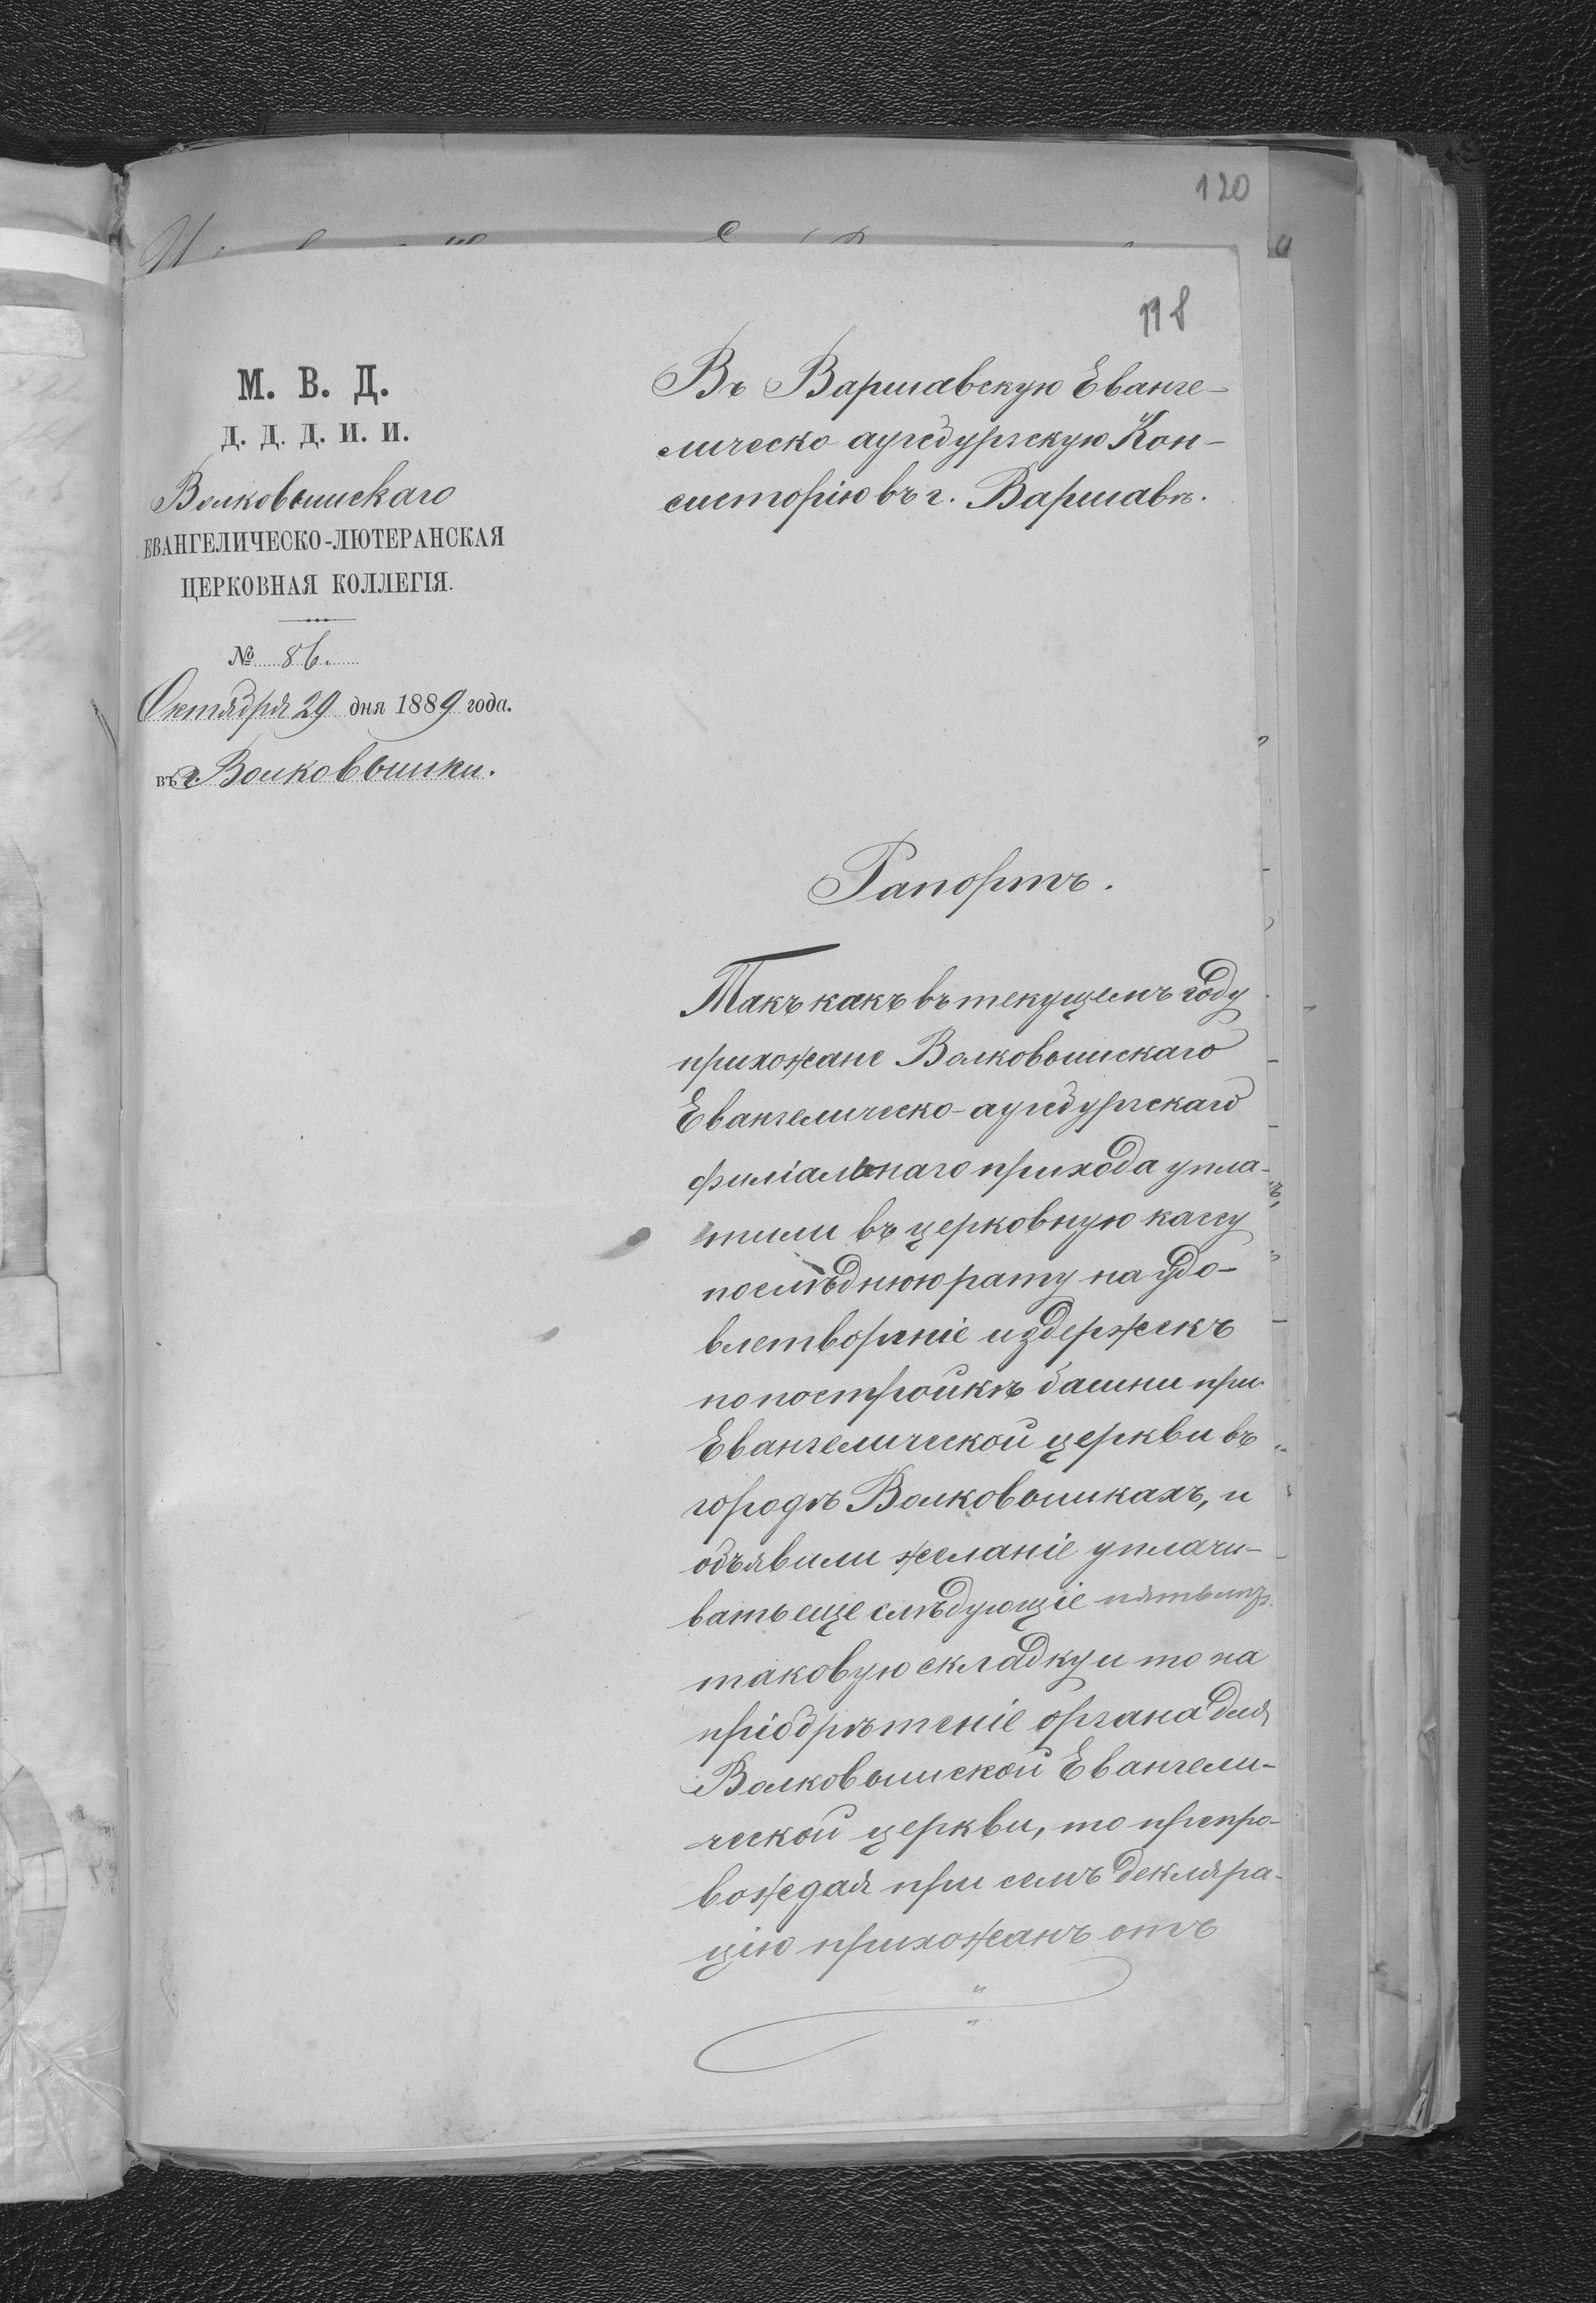 120
118
М. В. Д.
Д. Д. Д. И. И.
Волковышскаго
ЕВАНГЕЛИЧЕСКО-ЛЮТЕРАНСКАЯ
ЦЕРКОВНАЯ КОЛЛЕГІЯ.
№ 86.
Октября 29 дня 1889 года.
въ г. Волковышки.
Въ Варшавскую Еванге-
лическо аугсбургскую Кон-
систорію въ г. Варшавѣ.
Рапортъ.
Такъ какъ въ текущемъ году
прихожане Волковышскаго
Евангелическо-аугсбургскаго
филіальнаго прихода упла-
тили въ церковную кассу
послѣднюю рату на удо-
влетвореніе издержекъ
по постройкѣ башни при
Евангелической церкви въ
городѣ Волковышкахъ, и
объявили желаніе уплачи-
вать еще слѣдующіе пять лѣтъ
таковую складку и то на
пріобрѣтеніе органа для
Волковышской Евангели-
ческой церкви, то препро-
вождая при семъ декляра-
цію прихожанъ отъ